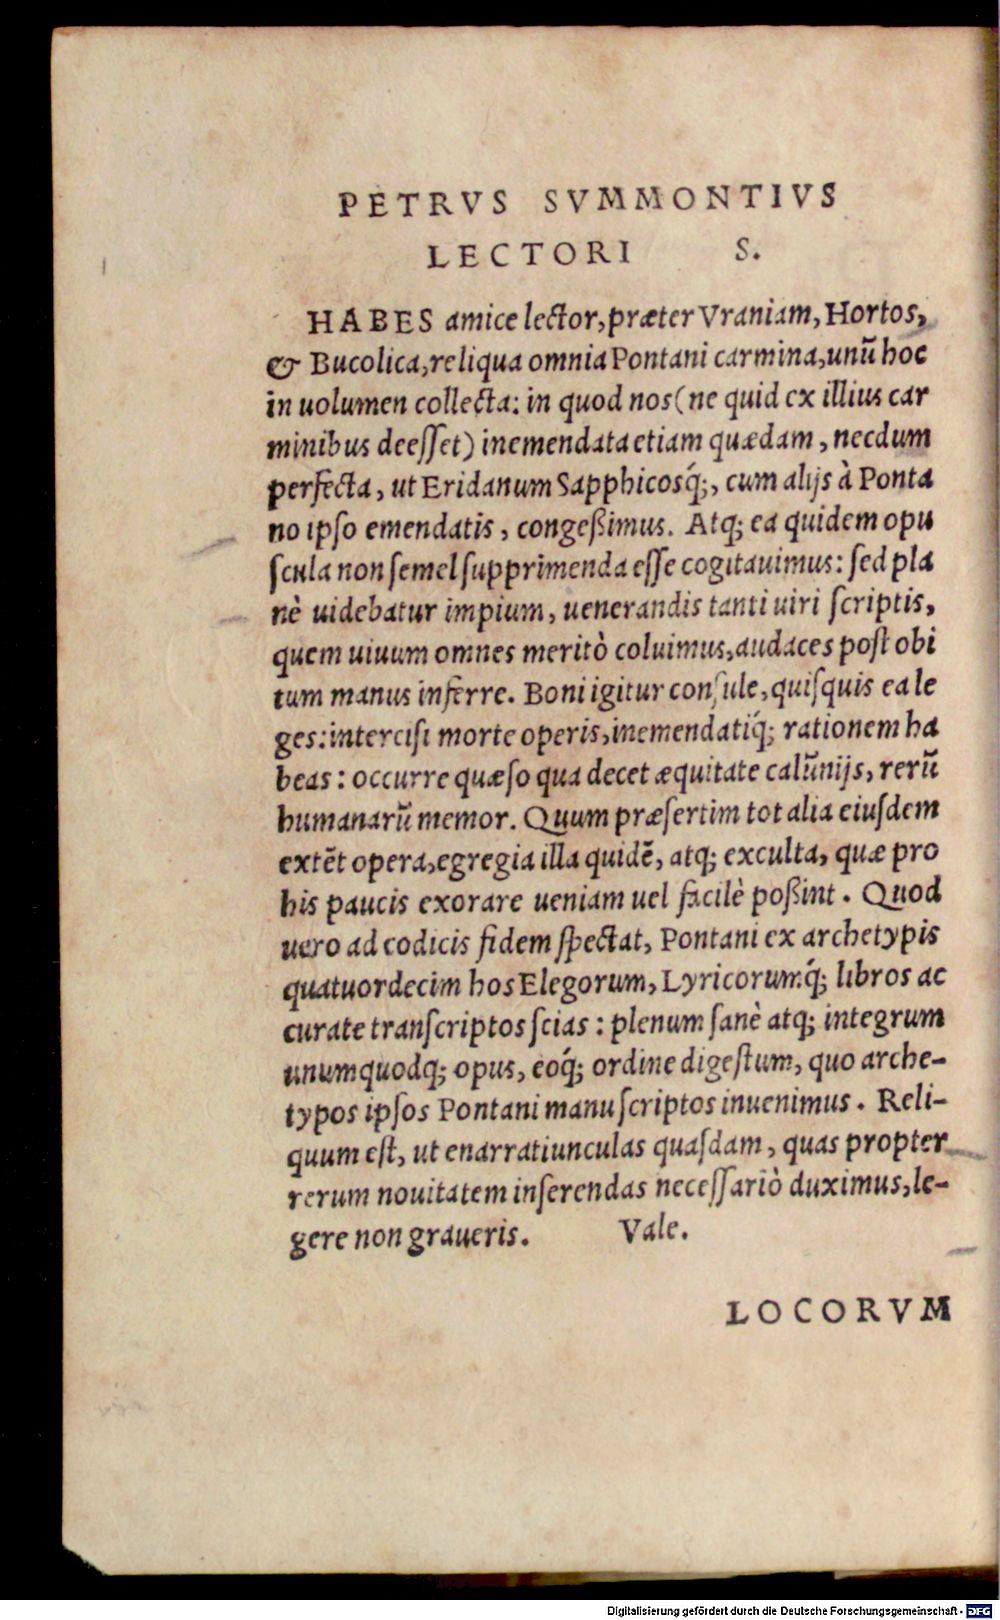 PETRVS SVMMONTIVS
LECTORI S.
HABES amice lector, præter Vraniam, Hortos,
& Bucolica, reliqua omnia Pontani carmina, unũ hoc
in uolumen collecta: in quod nos (ne quid ex illius car
minibus deeſſet) inemendata etiam quædam, necdum
perfecta, ut Eridanum Sapphicosq́;, cum alijs à Ponta
no ipſo emendatis, congeßimus. Atq; ea quidem opu
ſcula non ſemel ſupprimenda eſſe cogitauimus: ſed pla
nè uidebatur impium, uenerandis tanti uiri ſcriptis,
quem uiuum omnes meritò coluimus, audaces poſt obi
tum manus inferre. Boni igitur conſule, quiſquis ea le
ges: interciſi morte operis, inemendatiq́; rationem ha
beas: occurre quæſo qua decet æquitate calũnijs, rerũ
humanarũ memor. Quum præſertim tot alia eiuſdem
extẽt opera, egregia illa quidẽ, atq; exculta, quæ pro
his paucis exorare ueniam uel facilè poßint. Quod
uero ad codicis fidem ſpectat, Pontani ex archetypis
quatuordecim hos Elegorum, Lyricorumq́; libros ac
curate tranſcriptos ſcias: plenum ſanè atq; integrum
unumquodq; opus, eoq́; ordine digeſtum, quo arche-
typos ipſos Pontani manu ſcriptos inuenimus. Reli-
quum eſt, ut enarratiunculas quaſdam, quas propter
rerum nouitatem inſerendas neceſſariò duximus, le-
gere non graueris. Vale.
LOCORVM
Digitalisierung gefördert durch die Deutsche Forschungsgemeinschaft - DFG